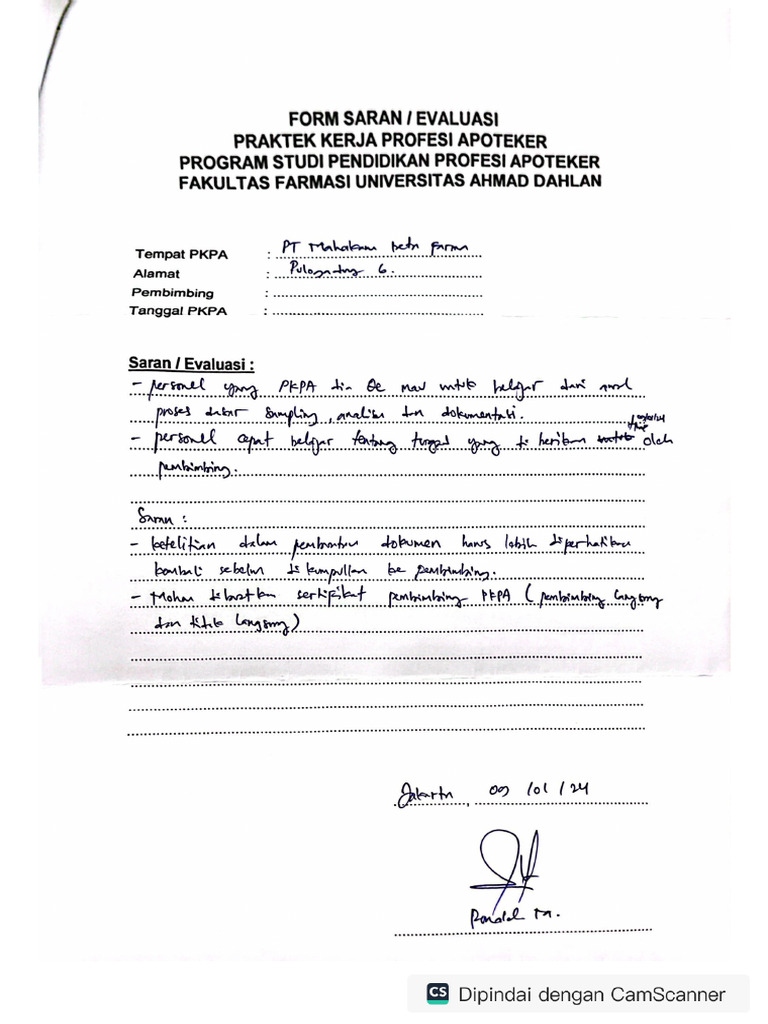 FORM SARAN / EVALUASI
PRAKTEK KERJA PROFESI APOTEKER
PROGRAM STUDI PENDIDIKAN PROFESI APOTEKER
FAKULTAS FARMASI UNIVERSITAS AHMAD DAHLAN
Tempat PKPA : PT Mahakam beta farma
Alamat : 6.
Pembimbing :
Tanggal PKPA :
Saran / Evaluasi :
- personel yang PKPA di mau untuk belajar dari awal
proses dasar sampling, analisa dan dokumentasi.
- personel cepat belajar tentang tugas yang di berikan oleh
pembimbing.
Saran :
- ketelitian dalam pembuatan dokumen harus lebih diperhatikan
kembali sebelum di kumpulkan ke pembimbing.
- Mohon dibuatkan sertifikat pembimbing PKPA (pembimbing langsung
dan tidak langsung)
Jakarta, 09 /01 /24
CS Dipindai dengan CamScanner